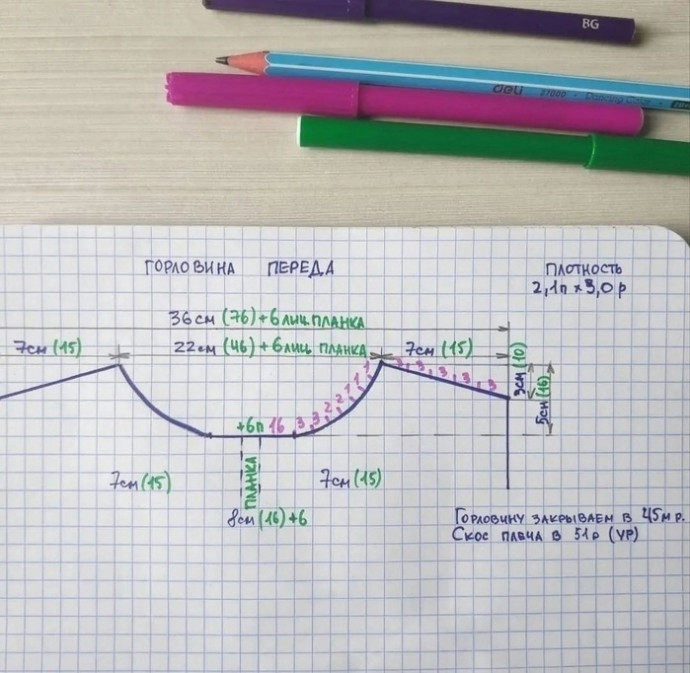 BG
deli
ГОРЛОВИНА ПЕРЕДА
ПЛОТНОСТЬ
2,1п × 3,0 р
36см (76) + 6 лиц ПЛАНКА
22см (46) + 6 лиц ПЛАНКА
7см (15)
7см (15)
3, 3, 3, 3, 3
3см (10)
5см (16)
+6п 16 3, 3, 2, 2, 1, 1, 1
ПЛАНКА
7см (15)
7см (15)
8см (16)+6
ГОРЛОВИНУ ЗАКРЫВАЕМ В 45М Р.
СКОС ПЛЕЧА В 51 Р (УР)